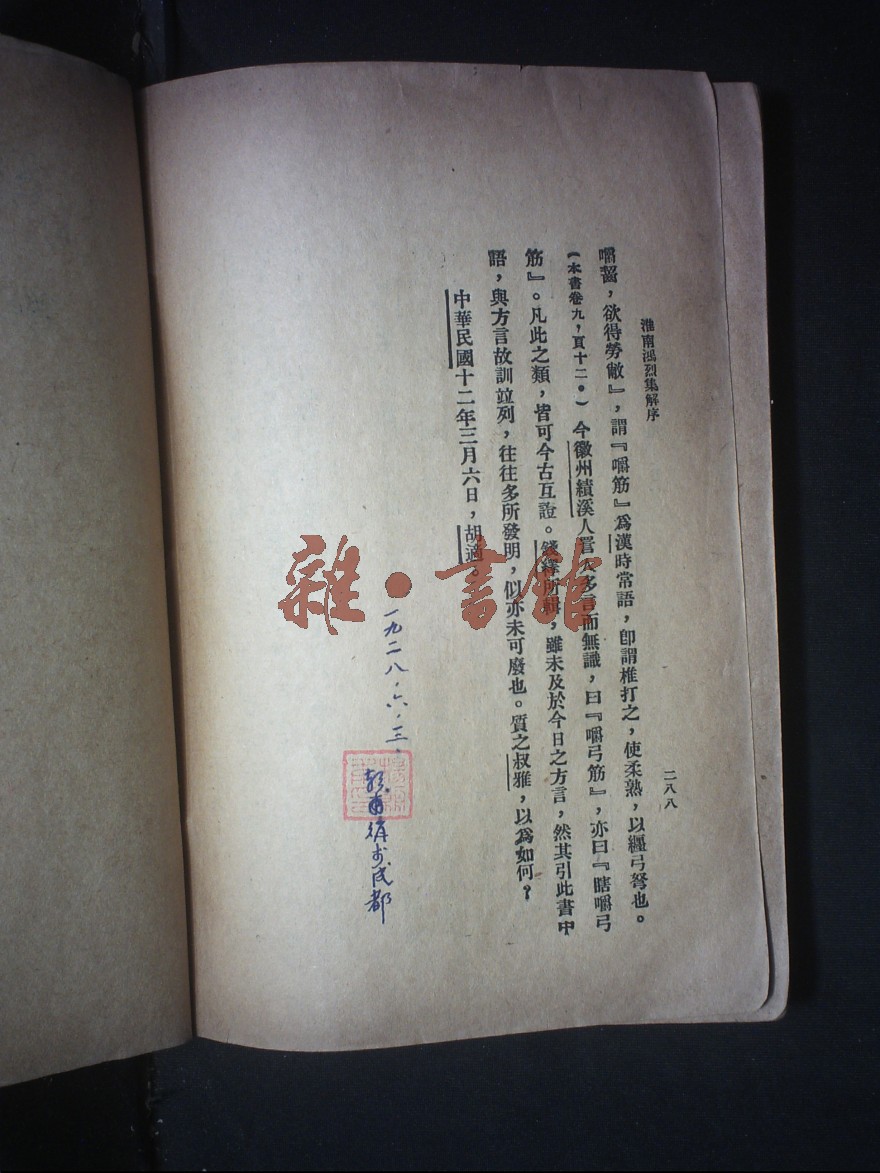 淮南鴻烈集解序
二八八
嚼齧，欲得勞敝』，謂『嚼筋』爲漢時常語，卽謂椎打之，使柔熟，以纏弓弩也。
（本書卷九，頁十二。）今徽州績溪人詈人多言而無識，曰『嚼弓筋』，亦曰『瞎嚼弓
筋』。凡此之類，皆可今古互證。錢繹所輯，雖未及於今日之方言，然其引此書中
語，與方言故訓竝列，往往多所發明，似亦未可廢也。質之叔雅，以爲如何？
中華民國十二年三月六日，胡適。
雜·書館
一九二八·六·三、
于成都